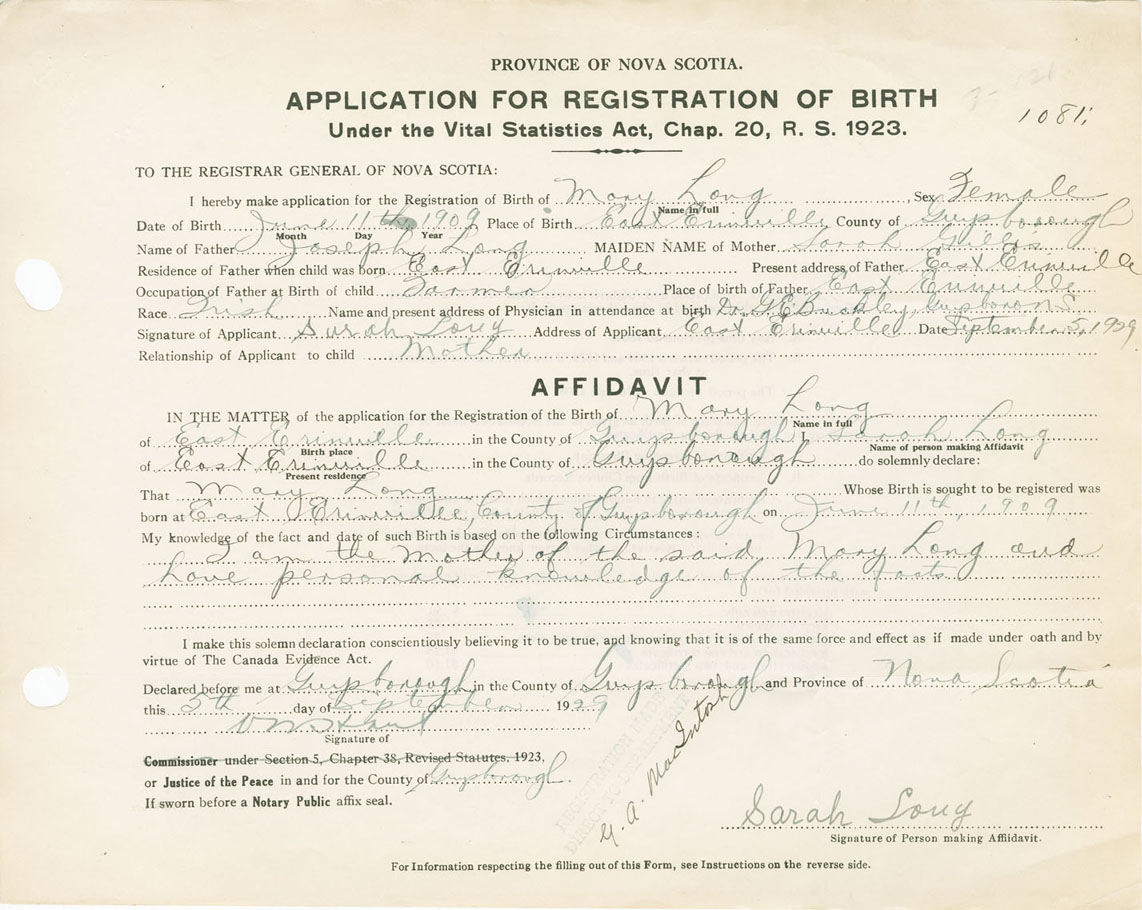 PROVINCE OF NOVA SCOTIA.
APPLICATION FOR REGISTRATION OF BIRTH
1081
Under the Vital Statistics Act, Chap. 20, R. S. 1923.
TO THE REGISTRAR GENERAL OF NOVA SCOTIA:
I hereby make application for the Registration of Birth of Mary Long, Sex Female
Name in full
Date of Birth June 11th 1909 Place of Birth East Erinville County of Guysborough
Month Day Year
Name of Father Joseph Long MAIDEN NAME of Mother Sarah Gillis
Residence of Father when child was born East Erinville Present address of Father East Erinville
Occupation of Father at Birth of child Farmer Place of birth of Father East Erinville
Race Irish Name and present address of Physician in attendance at birth Dr. G.E. Buckley, Guysboro N.S.
Signature of Applicant Sarah Long Address of Applicant East Erinville Date September 5, 1939
Relationship of Applicant to child Mother
AFFIDAVIT
IN THE MATTER of the application for the Registration of the Birth of Mary Long
Name in full
of East Erinville in the County of Guysborough I Sarah Long
Birth place Name of person making Affidavit
of East Erinville in the County of Guysborough do solemnly declare:
Present residence
That Mary Long Whose Birth is sought to be registered was
born at East Erinville, County of Guysborough on June 11th, 1909
My knowledge of the fact and date of such Birth is based on the following Circumstances:
I am the mother of the said Mary Long and
have personal knowledge of the facts
I make this solemn declaration conscientiously believing it to be true, and knowing that it is of the same force and effect as if made under oath and by
virtue of The Canada Evidence Act.
Declared before me at Guysborough in the County of Guysborough and Province of Nova Scotia
this 5th day of September 1939
Signature of
Commissioner under Section 5, Chapter 38, Revised Statutes, 1923,
or Justice of the Peace in and for the County of Guysborough.
If sworn before a Notary Public affix seal.
REGISTRATION MADE
DIRECT TO DEPARTMENT
G. A. MacIntosh
Sarah Long
Signature of Person making Affidavit.
For Information respecting the filling out of this Form, see Instructions on the reverse side.